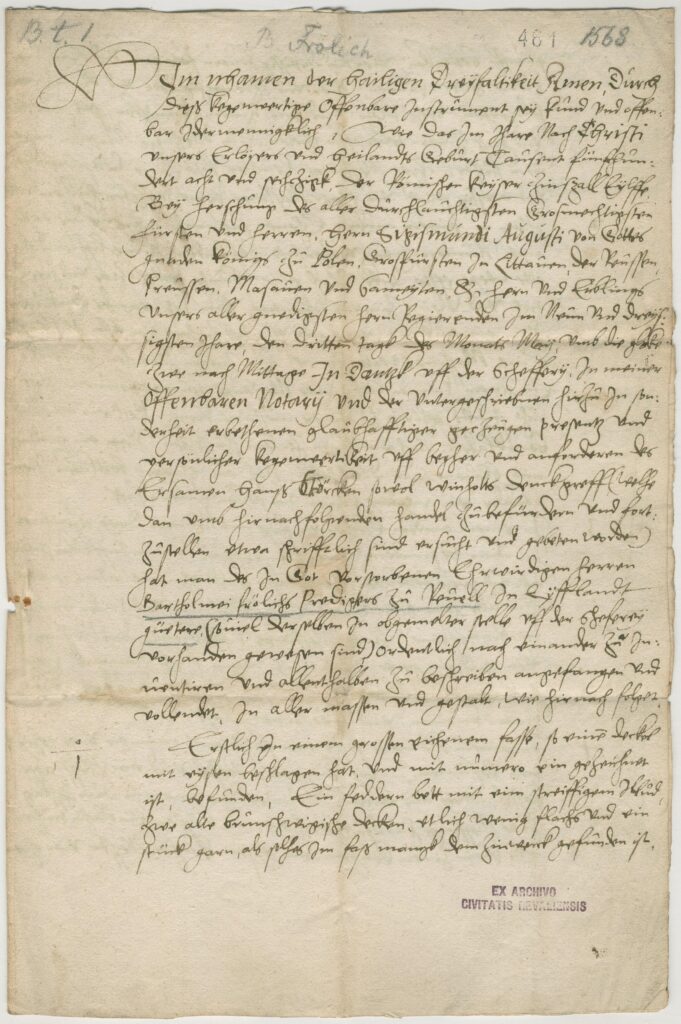 B. t. 1 B. Frölich 461 1568
Im nhamen der heiligen Dreyfaltikeit Amen, Durch
diess kegenwertige Offenbare Instrument sey kund vnd offen-
bar Idermenniglich, Wie das Im Ihare Nach Christi
vnsers Erlösers vnd heilandts Geburt Tausent fünffhun-
dert acht vnd sechczigk, der Römischen Keyser Zinszall Eylffe
Bey herschung des aller durchlauchtigsten Grosmechtigsten
fürsten vnd herren, hern Sigismundi Augusti von Gottes
gnaden Königs zu Polen, Grosfürsten In Littauen, der Reussen,
Preussen, Masauen vnd Sameyten, &c. hern vnd Erblings
vnsers aller gnedigsten hern Regierenden Im Neun vnd dreys-
sigsten Ihare, den dritten tagk des Monats Maij vmb die
zwe nach Mittage In Dantzk vff der Schefferey, In meiner
Offenbaren Notarij vnd der vntergeschriebnen hirzu In son-
derheit erbethenen glaubhafftiger geczeugen presentz vnd
persönlicher kegenwertikeit vff begher vnd anforderen des
Ersamen Hanss Störcken sowol Winholts (welche
dan vmb hirnachfolgenden handel zubefürdern vnd fort-
zustellen etwa schrifftlich sind ersucht vnd gebeten worden)
hat man des In Got verstorbenen Ehrwirdigen herren
Bartholmei frölichs Predigers zu Reuell In Lyfflandt
guetere (souiel derselben In obgemelter stelle vff der Sheferey
vorhanden gewesen sind) Ordentlich nach einander zu In-
uentiren vnd allenthalben zu beschreiben angefangen vnd
vollendet, In aller massen vnd gestalt, wie hirnach folget.
1 Erstlich In einem grossen eichenem fass, so eine deckel
mit eysen beschlagen hat, vnd mit numero ein gezeichnet
ist, befunden, Ein feddern bett mit eim streiffigem
zwe alte brunschwigische decken, etlich wenig flachs vnd ein
stück garn, als solches Im fass mangk dem gefunden ist.
EX ARCHIVO
CIVITATIS REVALIENSIS